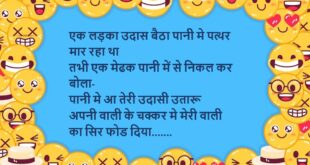 एक लड़का उदास बैठा पानी मे पत्थर
मार रहा था
तभी एक मेढक पानी में से निकल कर
बोला-
पानी मे आ तेरी उदासी उतारू
अपनी वाली के चक्कर मे मेरी वाली
का सिर फोड दिया.......